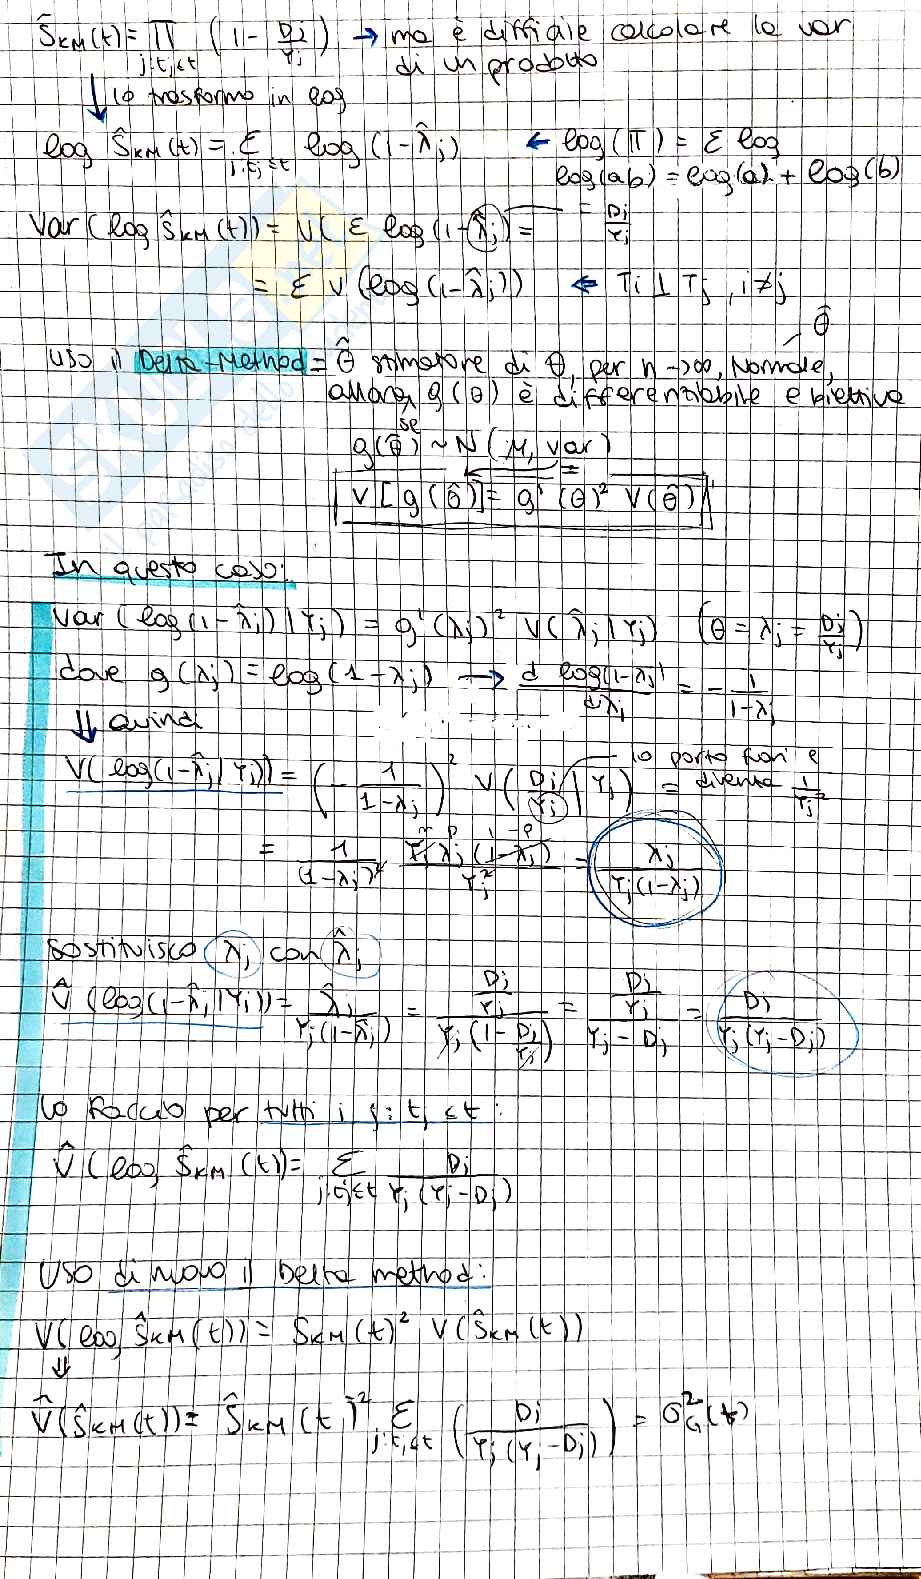 Ŝ_KM(t) = Π_{j: t_j ≤ t} (1 - D_j/Y_j) → ma è difficile calcolare la var di un prodotto
↓ lo trasformo in log
log Ŝ_KM(t) = Σ_{j: t_j ≤ t} log(1-λ̂_j) ← log(Π) = Σ log
log(ab) = log(a) + log(b)
Var(log Ŝ_KM(t)) = V(Σ log(1-λ̂_j)) = = D_j/Y_j
= Σ V(log(1-λ̂_j)) ← T_i ⊥ T_j, i≠j
θ̂
Uso il Delta-Method = θ̂ stimatore di θ, per n→∞, Normale,
allora, se g(θ) è differenziabile e biettiva
g(θ̂) ~ N(μ, var)
V[g(θ̂)] = g'(θ)² V(θ̂)
In questo caso:
Var(log(1-λ̂_j)|Y_j) = g'(λ_j)² V(λ̂_j|Y_j) (θ = λ_j = D_j/Y_j)
dove g(λ_j) = log(1-λ_j) → d log(1-λ_j)/dλ_j = -1/(1-λ_j)
⇓ Quindi
V(log(1-λ̂_j|Y_j)) = (-1/(1-λ_j))² V(D_j/Y_j | Y_j) = lo porto fuori e diventa 1/Y_j²
= 1/(1-λ_j)² · Y_j λ_j (1-λ_j)/Y_j² = λ_j/(Y_j(1-λ_j))
n p 1-p
Sostituisco λ_j con λ̂_j
V̂(log(1-λ̂_j|Y_j)) = λ̂_j/(Y_j(1-λ̂_j)) = (D_j/Y_j)/(Y_j(1-D_j/Y_j)) = (D_j/Y_j)/(Y_j-D_j) = D_j/(Y_j(Y_j-D_j))
Lo faccio per tutti i j: t_j ≤ t:
V̂(log Ŝ_KM(t)) = Σ_{j: t_j ≤ t} D_j/(Y_j(Y_j-D_j))
Uso di nuovo il Delta method:
V(log Ŝ_KM(t)) = S_KM(t)² V(Ŝ_KM(t))
⇓
V̂(Ŝ_KM(t)) = Ŝ_KM(t)² Σ_{j: t_j ≤ t} (D_j/(Y_j(Y_j-D_j))) = σ²_G(t)